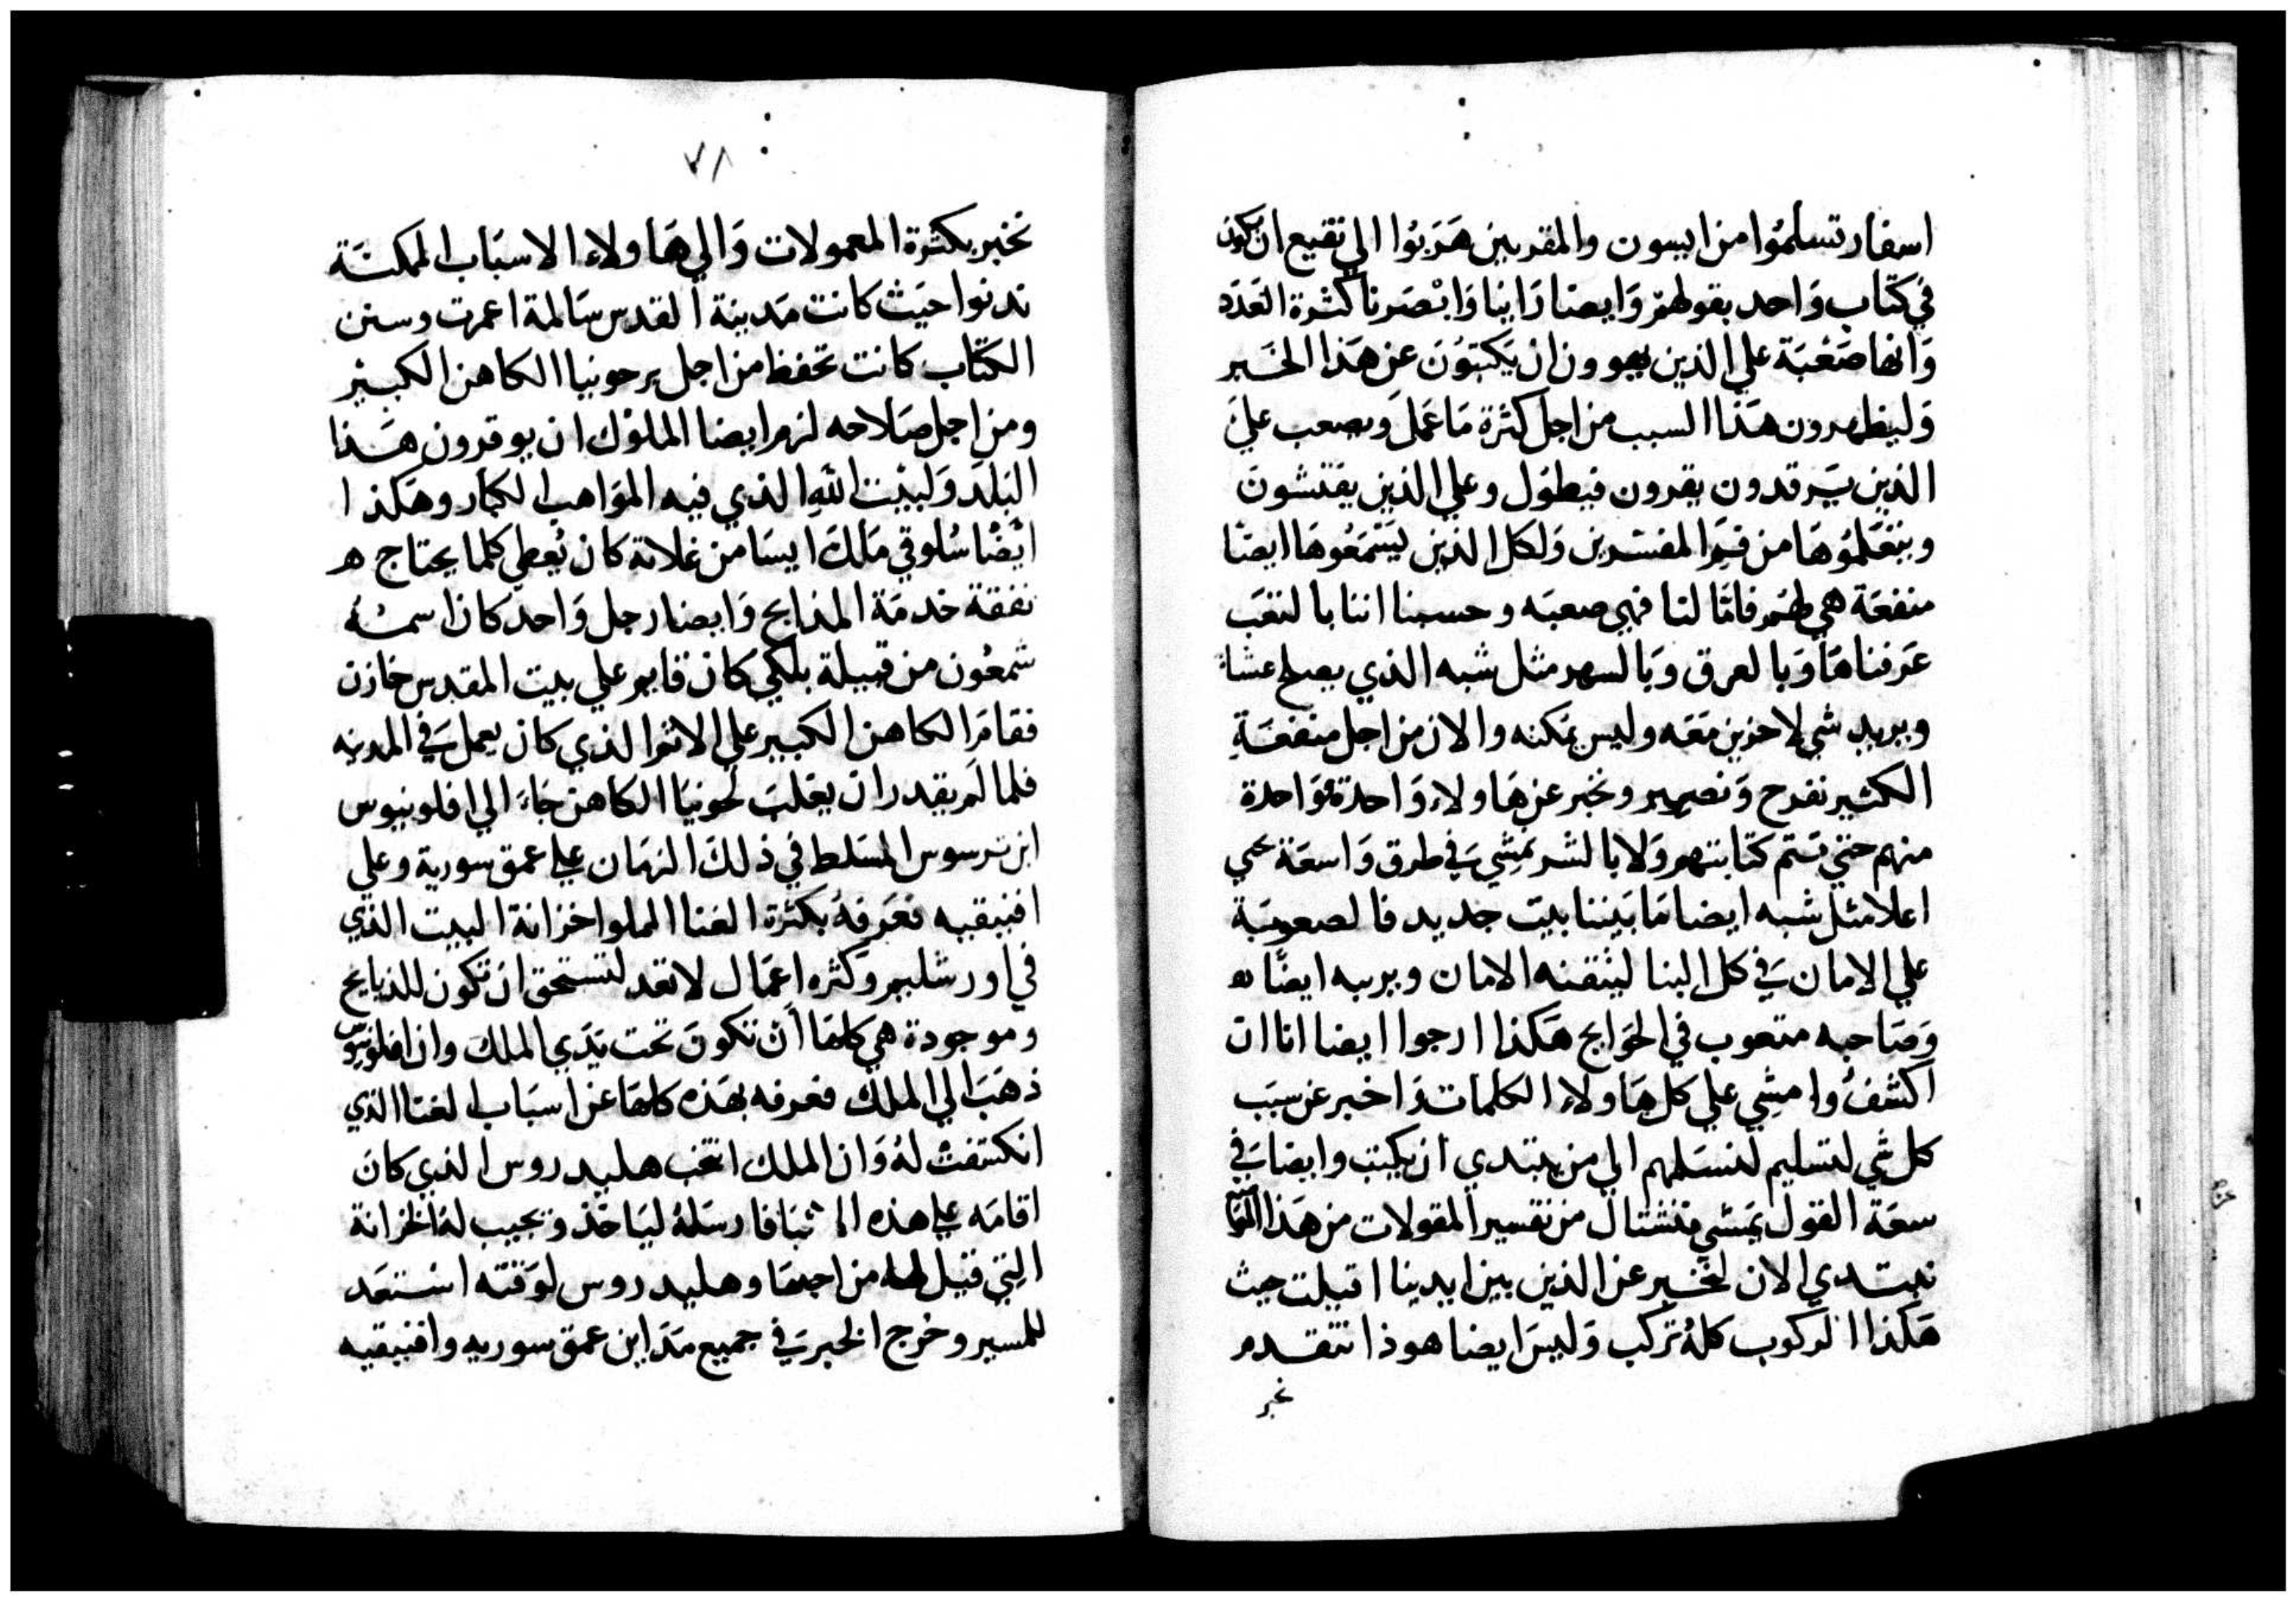 اسفار تسلموا من ايسون والمقربين هربوا الي نقيع ان يكون
في كتاب واحد بقولهم وايضا راينا وابصرنا كثرة العدد
وانها صعبة علي الذين يهوون ان يكتبون عن هذا الخبر
وليظهرون هذا السبب من اجل كثرة ما عمل ويصعب علي
الذين يرقدون يقرون فيطول وعلي الذين يفتشون
ويتعلموها من فم المفسرين ولكل الذين يستمعوها ايضا
منفعة هي لهم فاما لنا فهي صعبه وحسبنا اننا بالتعب
عرفناها وبالعرق وبالسهر مثل شبه الذي يصلح عشاء
ويريد شي لاخرين معه وليس يمكنه والان من اجل منفعة
الكثير نفرح ونصير ونخبر عن هاولاء واحدة فواحدة
منهم حتي تتم كتابتهم ولا بالشر يمشي في طرق واسعة
اعلا مثل شبه ايضا ما بيننا بيت جديد فالصعوبة
علي الامان في كل البنا ليتقنه الامان ويربيه ايضا
وصاحبه متعوب في الحوايج هكذا ارجوا ايضا انا ان
اكشف وامشي علي كل هاولاء الكلمات واخبر عن سبب
كل شي لتسليم لنسلمهم الي من يبتدي ان يكتب وايضا في
سعة القول يمشي من تفسير المقولات من هذا
نبتدي الان لنخبر عن الذين بين ايدينا اقبلت حيث
هكذا الركوب كله تركب وليس ايضا هوذا نتقدم
نخبر
٧٨
نخبر بكثرة المعمولات والي هاولاء الاسباب الممكنة
ندنوا حيث كانت مدينة القدس سالمة اعمرت وسنن
الكتاب كانت تحفظ من اجل بر حونيا الكاهن الكبير
ومن اجل صلاحه لزم ايضا الملوك ان يوقرون هذا
البلد ولبيت الله الذي فيه المواهب الكبار وهكذا
ايضا سلوقي ملك ايسا من غلاته كان يعطي كلما يحتاج
نفقة خدمة المذابح وايضا رجل واحد كان اسمه
شمعون من قبيلة بلكي كان قايم علي بيت المقدس خازن
فقام الكاهن الكبير علي الاثم الذي كان يعمل في المدينه
فلما لم يقدر ان يغلب لحونيا الكاهن جاء الي افلونيوس
ابن ترسوس المسلط في ذلك الزمان علي عمق سورية وعلي
افنيقيه فعرفه بكثرة الغنا المملوا خزانة البيت الذي
في اورشليم وكثره اعمال لا تعد لتستحق ان تكون للذبايح
وموجودة هي كلها ان تكون تحت يدي الملك وان افلونيوس
ذهب الي الملك فعرفه بهذه كلها عن اسباب الغنا الذي
انكشفت له وان الملك انتخب هليدروس الذي كان
اقامه علي هذه الاشيا فارسله لياخذ ويجيب له الخزانة
التي قيل له من اجلها وهليدروس لوقته استعد
للمسير وخرج الخبر في جميع مداين عمق سوريه وافنيقيه